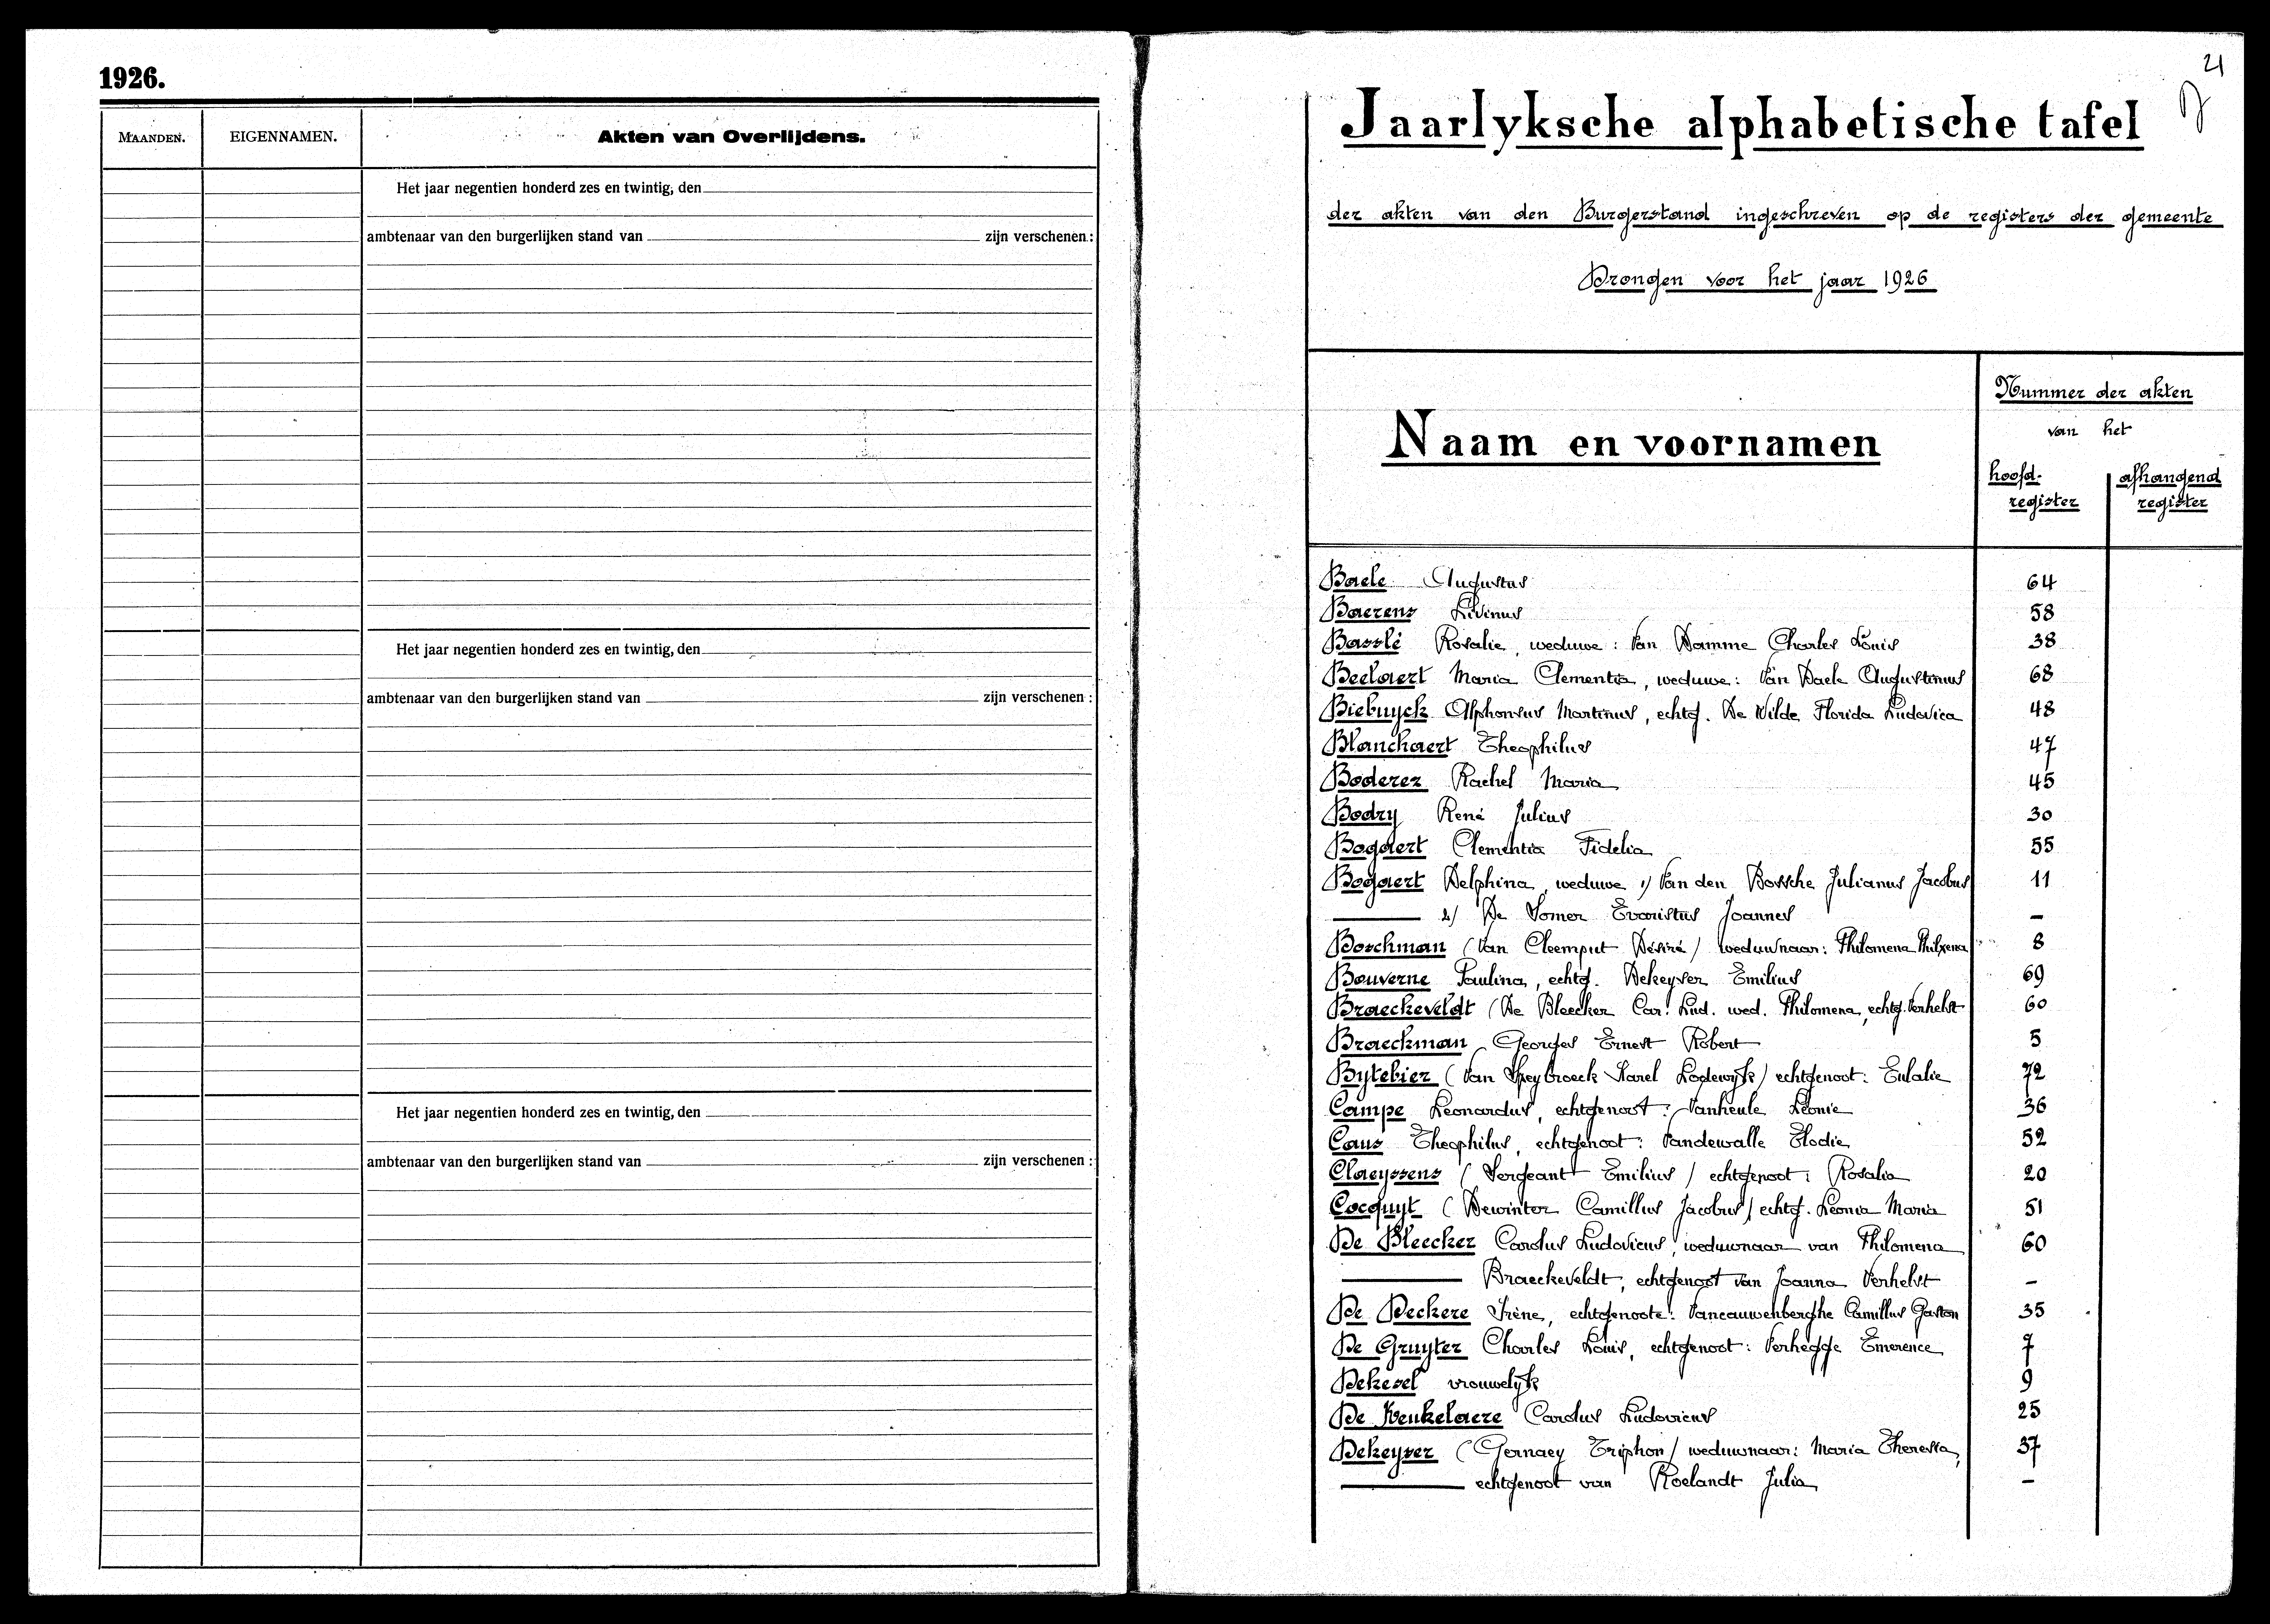 1926.
MAANDEN.
EIGENNAMEN.
Akten van Overlijdens.
Het jaar negentien honderd zes en twintig, den
ambtenaar van den burgerlijken stand van zijn verschenen :
Het jaar negentien honderd zes en twintig, den
ambtenaar van den burgerlijken stand van zijn verschenen :
Het jaar negentien honderd zes en twintig, den
ambtenaar van den burgerlijken stand van zijn verschenen :
21
Jaarlyksche alphabetische tafel
der akten van den Burgerstand ingeschreven op de registers der gemeente
Drongen voor het jaar 1926
Naam en voornamen
Nummer der akten
van het
hoofd- afhangend
register register
Baele Augustus 64
Baerens Livinus 58
Basslé Rosalie, weduwe : Van Damme Charles Louis 38
Beelaert Maria Clementia, weduwe : Van Daele Augustinus 68
Biebuyck Alphonsus Martinus, echtg. De Wilde Florida Ludovica 48
Blanchaert Theophilus 47
Boderez Rachel Maria 45
Bodry René Julius 30
Bogaert Clementia Fidelia 55
Bogaert Delphina, weduwe 1/ Van den Bossche Julianus Jacobus 11
2/ De Somer Evaristus Joannes –
Boschman (Van Cleemput Désiré / weduwnaar : Philomena 8
Bouverne Paulina, echtg. Dekeyser Emilius 69
Braeckeveldt (De Bleecker Car. Lud. wed. Philomena, echtg. Verhelst 60
Braeckman Georges Ernest Robert 5
Bytebier (Van Speybroeck Karel Lodewyk) echtgenoot : Eulalie 72
Campe Leonardus, echtgenoot : Vanheule Léonie 36
Caus Theophilus, echtgenoot : Vandewalle Elodie 52
Claeyssens (Sergeant Emilius / echtgenoot : Rosalia 20
Cocquyt (Dewinter Camillus Jacobus / echtg. Leonia Maria 51
De Bleecker Carolus Ludovicus, weduwnaar van Philomena 60
Braeckeveldt, echtgenoot van Joanna Verhelst –
De Deckere Irène, echtgenoote : Vancauwenberghe Camillus Gaston 35
De Gruyter Charles Louis, echtgenoot : Verhegge Emerence 7
Dekesel vrouwelyk 9
De Keukelaere Carolus Ludovicus 25
Dekeyser (Gernaey Triphon / weduwnaar : Maria Theresia, 37
echtgenoot van Roelandt Julia –